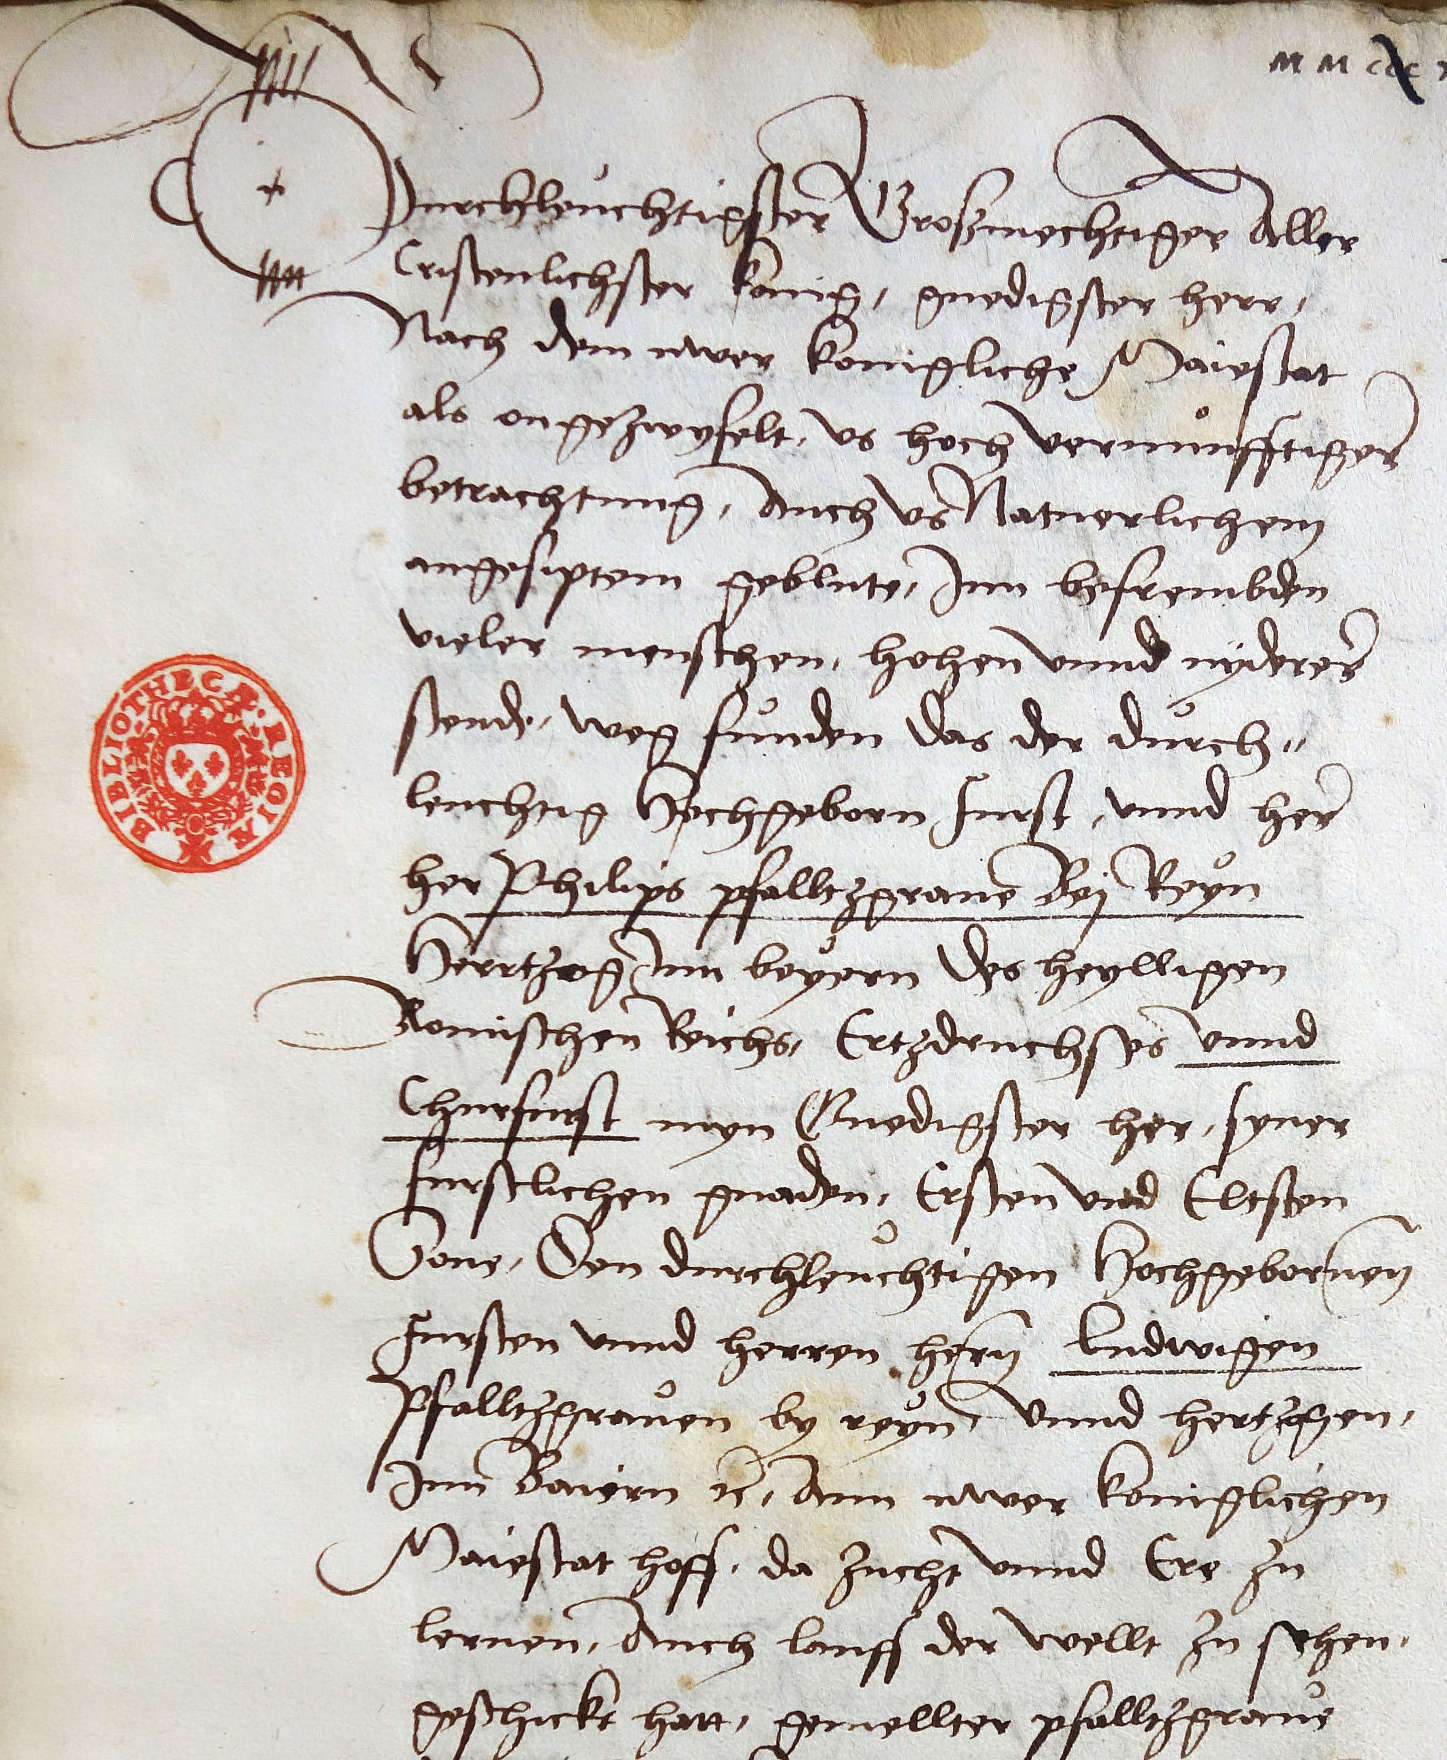 MM CCC
Durchleuchtigster Großmechtiger Aller
Cristenlichster konig, gnedigster herr,
Nach dem uwer konigliche Maiestat
als ongezwyfelt, us hoch vernunfftiger
betrachtung, Auch us Naturlichem
angesiptem geblute, Inn befrembden
vieler menschen, hohen vnnd nyderer
stende, weg funden das der durch„
leuchtig Hochgeborn furst, vnnd her
her Philips pfalltzgraue Bej Reyn
Herrtzog Inn beyern des heylligen
Romischen Reichs, Ertzdruchses vnnd
Churfurst myn Gnedigster her, syner
furstlichen gnaden, Ersten vnd Eltsten
Sone, Den durchleuchtigen Hochgebornen
Fursten vnnd herren hern Ludwigen
Pfalltzgrauen by reyn, vnnd hertzogen,
Inn Baiern ꝛc, Ann uwer koniglichen
Maiestat hoff, da zucht vnnd Ere zu
lernen, Auch lauff der wellt zu sehen,
geschickt hatt, gemellter pfalltzgraue
BIBLIOTHECÆ REGIÆ